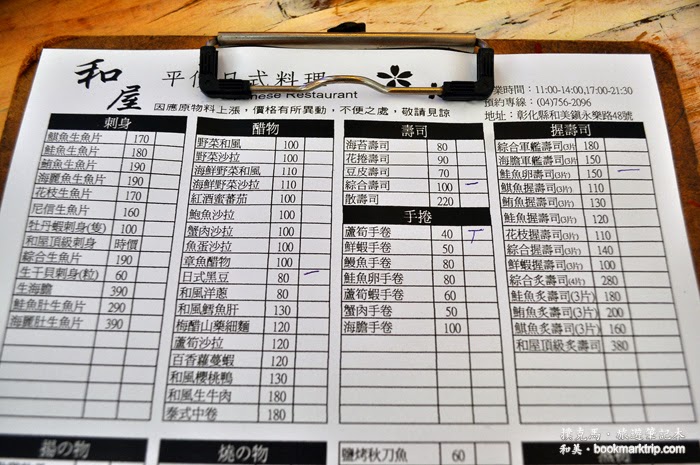 和屋 平價日式料理
Restaurant
因應原物料上漲，價格有所異動，不便之處，敬請見諒
業時間：11:00-14:00,17:00-21:30
預約專線：(04)756-2096
地址：彰化縣和美鎮永樂路48號
刺身
鯕魚生魚片 170
鮭魚生魚片 180
鮪魚生魚片 190
海麗魚生魚片 190
花枝生魚片 170
尼信生魚片 160
牡丹蝦刺身(隻) 100
和屋頂級刺身 時價
綜合生魚片 190
生干貝刺身(粒) 60
生海膽 390
鮭魚肚生魚片 290
海麗肚生魚片 390
醋物
野菜和風 100
野菜沙拉 100
海鮮野菜和風 110
海鮮野菜沙拉 110
紅酒蜜蕃茄 100
鮑魚沙拉 100
蟹肉沙拉 100
魚蛋沙拉 100
章魚醋物 100
日式黑豆 80
和風洋蔥 80
和風鱈魚肝 130
梅醋山藥細麵 120
蘆筍沙拉 120
百香蘿蔓蝦 120
和風櫻桃鴨 130
和風生牛肉 180
泰式中卷 180
壽司
海苔壽司 80
花捲壽司 90
豆皮壽司 70
綜合壽司 100
散壽司 220
手捲
蘆筍手卷 40
鮮蝦手卷 50
鰻魚手卷 80
鮭魚卵手卷 80
蘆筍蝦手卷 60
蟹肉手卷 50
海膽手卷 100
握壽司
綜合軍艦壽司(3片) 180
海膽軍艦壽司(3片)
鮭魚卵壽司(3片) 150
鯕魚握壽司(3片) 110
鮪魚握壽司(3片) 130
鮭魚握壽司(3片) 120
花枝握壽司(3片) 110
綜合握壽司(3片) 140
鮮蝦握壽司(3片) 100
綜合炙壽司(4片) 280
鮭魚炙壽司(3片) 180
鮪魚炙壽司(3片) 200
鯕魚炙壽司(3片) 160
和屋頂級炙壽司 380
揚の物
燒の物
鹽烤秋刀魚 60
撲克馬‧旅遊筆記本
和美‧bookmarktrip.com